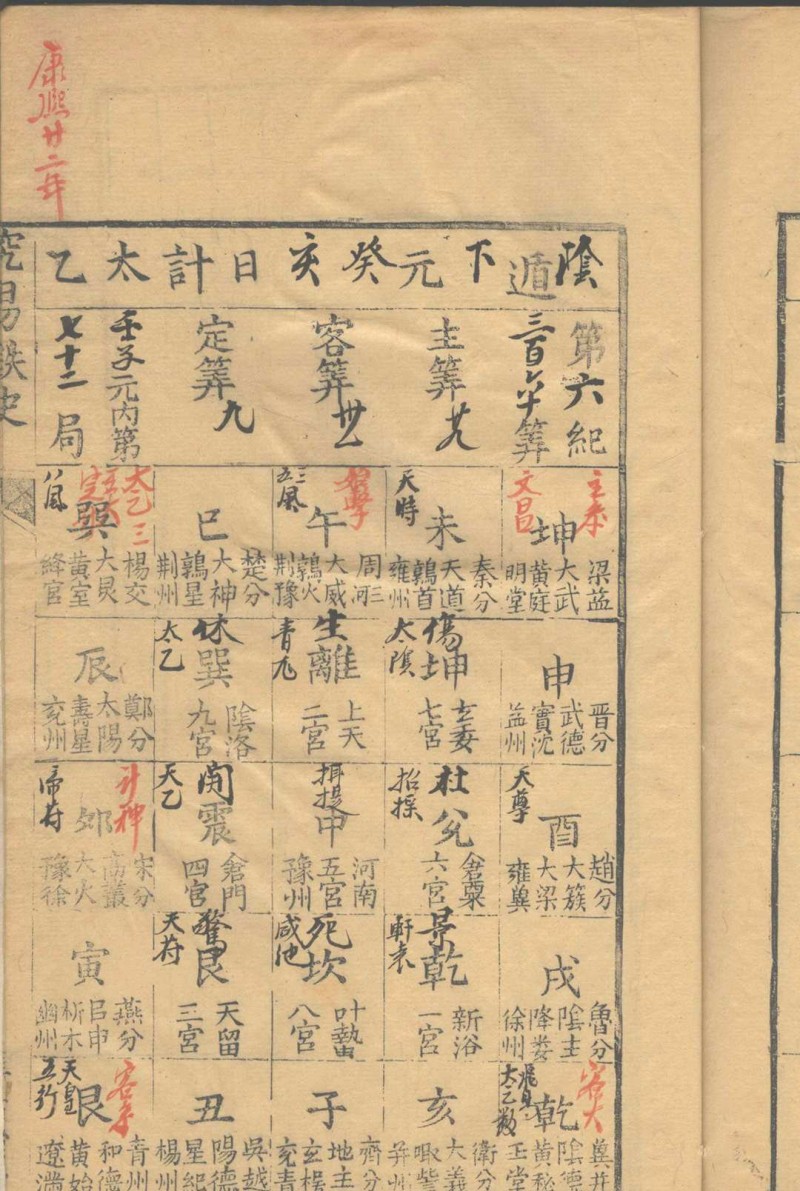 康熙廿二年
陰遁下元癸亥日計太乙
第六紀
三百六十筭
主筭廿九
客筭
定筭九
壬子元內第
七十二局
主參
文昌
坤
梁益
大武
黃庭
明堂
天時
未
秦分
天道
鶉首
雍州
午
周三河
大威
鶉火
荆豫
巳
楚分
大神
鶉星
荆州
太乙三
八風
巽
楊交
大炅
黃室
絳宮
申
晋分
武德
實沈
益州
傷
坤
太陰
玄委
七宮
生
離
上天
二宮
休
巽
太乙
陰洛
九宮
辰
鄭分
太陽
壽星
兖州
天尊
酉
趙分
大簇
大梁
雍冀
杜
兊
招搖
倉粟
六宮
中
河南
五宮
豫州
開
震
天乙
倉門
四宮
帝符
卯
宋分
高叢
大火
豫徐
戌
魯分
陰主
降婁
徐州
景
乾
新洛
一宮
死
坎
咸池
叶蟄
八宮
驚
艮
天符
天留
三宮
寅
燕分
呂申
析木
幽州
客大
乾
冀并
陰德
黃秘
玉堂
亥
衛分
大義
娵訾
并州
子
齊分
地主
玄枵
兖青
丑
吳越
陽德
星紀
楊州
客參
天皇
五行
艮
青州
和德
黃始
遼海